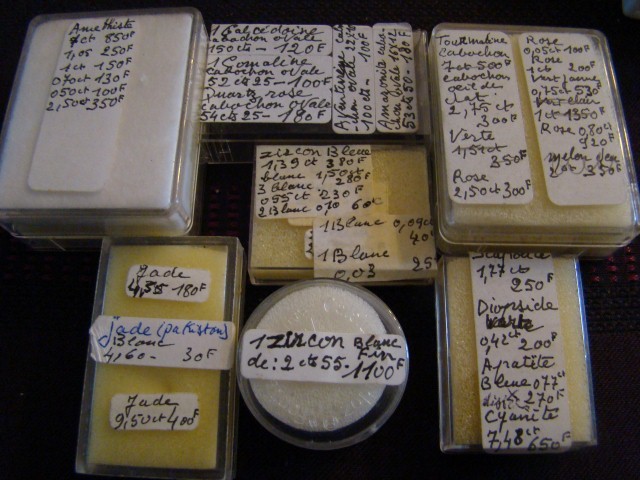 Amethiste
7ct 850F
1,05 250F
1ct 150F
0,70ct 130F
050ct 100F
2,50ct 350F
1 Calcédoine
cabochon ovale
150cts - 120F
1 Cornaline
cabochon ovale
52cts 25 - 100F
quartz rose
cabochon ovale
54ct 25 - 180F
100cts - 100F
Amazonite cabo-
chon ovale
53cts 50 - 180F
Tourmaline
Cabochon
7ct 500F
cabochon
oeil de
chat.
2,75ct
300F
Verte
1,51ct
350F
Rose
2,50ct 300F
Rose
0,05ct 100F
Rose
1ct 200F
Vert jaune
0,75ct 530F
Vert clair
1ct 1350F
Rose 0,80ct
920F
melon d'eau
350F
Zircon Bleue
1,39ct 380F
blanc 1,50ct
280F
3 blanc
055ct 230F
2 Blanc 0,70 60F
1 Blanc 0,09ct
40F
1 Blanc
0,03 25
Jade
4,35 180F
jade (pakistan)
Blanc
4,60 - 30F
Jade
9,50ct 400F
1 zircon Blanc
Fin
de : 2cts 55 - 1100F
1,77ct
250F
Diopside
verte
0,42ct 200F
Apatite
Bleue 077ct
270F
Cyanite
7,48ct 650F